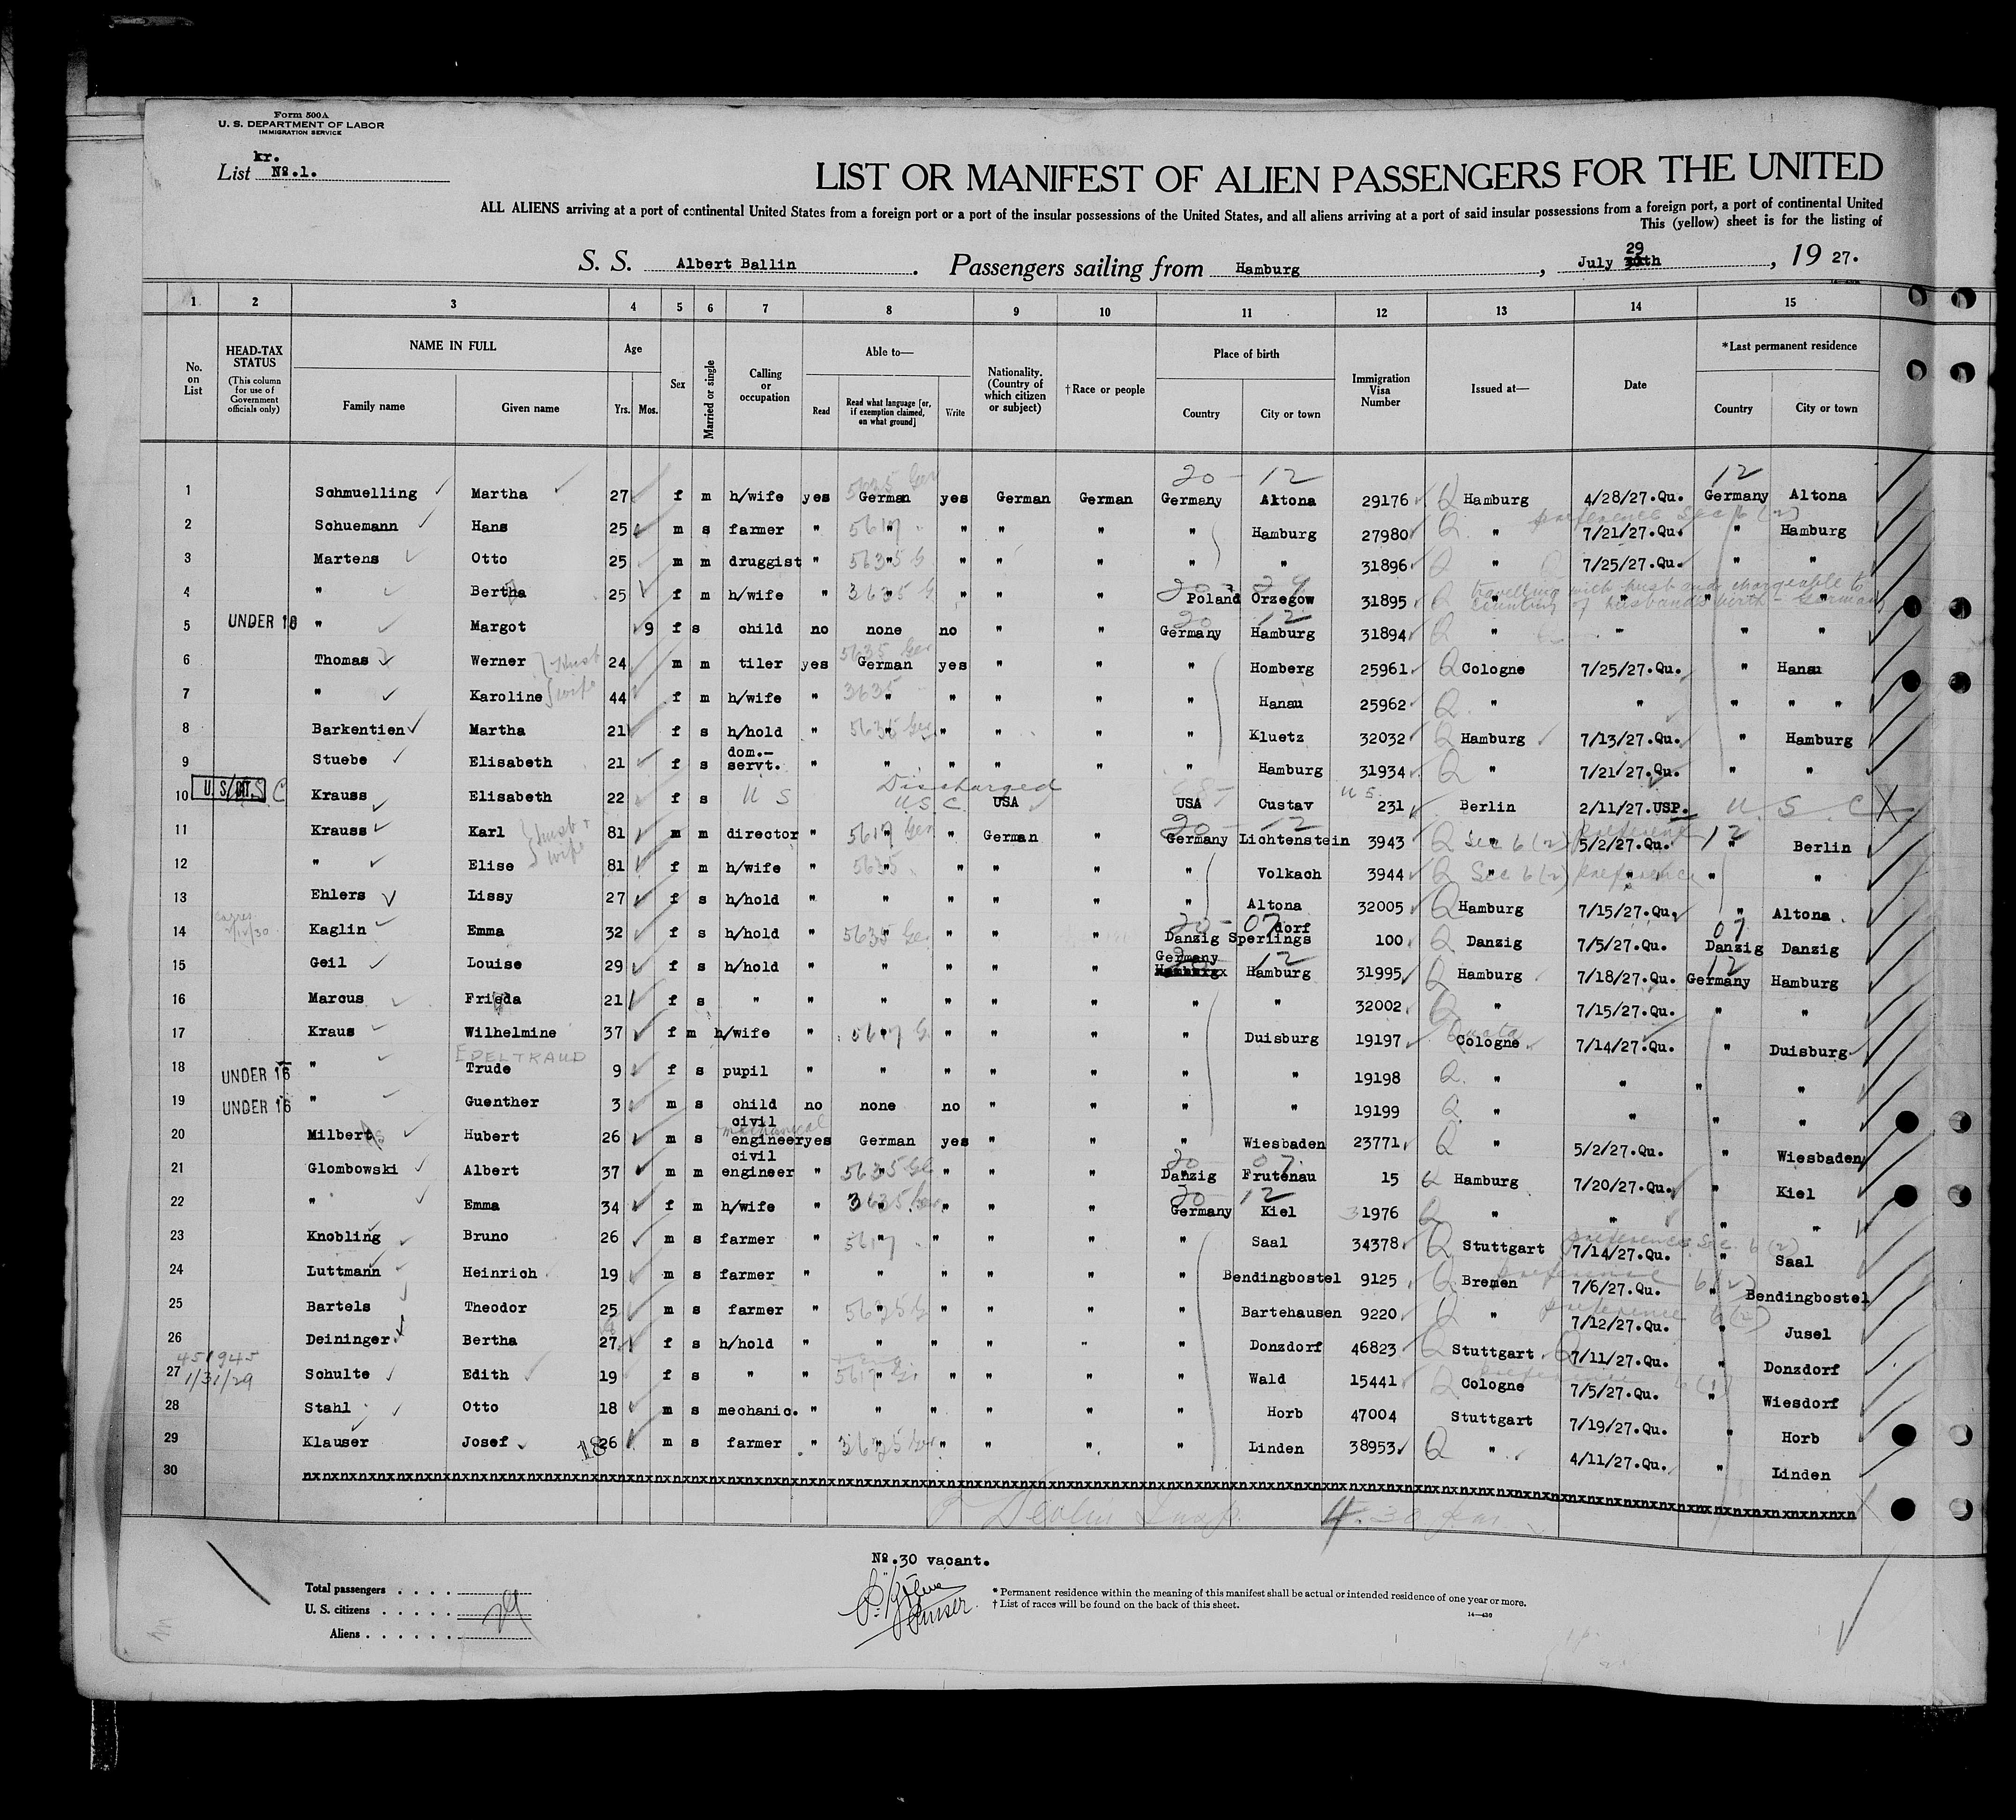 Form 500A
U. S. DEPARTMENT OF LABOR
IMMIGRATION SERVICE
kr.
List № .1.
LIST OR MANIFEST OF ALIEN PASSENGERS FOR THE UNITED
ALL ALIENS arriving at a port of continental United States from a foreign port or a port of the insular possessions of the United States, and all aliens arriving at a port of said insular possessions from a foreign port, a port of continental United
This (yellow) sheet is for the listing of
S. S. Albert Ballin . Passengers sailing from Hamburg , July 29th , 19 27.
1 2 3 4 5 6 7 8 9 10 11 12 13 14 15
No. on List
HEAD-TAX STATUS (This column for use of Government officials only)
NAME IN FULL Family name Given name
Age Yrs. Mos.
Sex
Married or single
Calling or occupation
Able to— Read Read what language [or, if exemption claimed, on what ground] Write
Nationality. (Country of which citizen or subject)
†Race or people
Place of birth Country City or town
Immigration Visa Number
Issued at—
Date
*Last permanent residence Country City or town
20 - 12 12
1 Schmuelling Martha 27 f m h/wife yes German yes German German Germany Altona 29176 Q Hamburg 4/28/27.Qu. Germany Altona
preference Sec 6 (2)
2 Schuemann Hans 25 m s farmer " 5617 " " " " " Hamburg 27980 Q " 7/21/27.Qu. " Hamburg
3 Martens Otto 25 m m druggist " 5635 G " " " " " " 31896 Q " 7/25/27.Qu. " "
travelling with husband chargeable to
country of husbands birth - Germany
4 " Bertha 25 f m h/wife " 3635 G " " " " Poland Orzegow 31895 Q " " " "
20 12
5 UNDER 18 " Margot 9 f s child no none no " " Germany Hamburg 31894 Q " " " "
5635 Ger
6 Thomas Werner Husb 24 m m tiler yes German yes " " " Homberg 25961 Q Cologne 7/25/27.Qu. " Hanau
7 " Karoline wife 44 f m h/wife " 3635 " " " " " Hanau 25962 Q " " " " "
8 Barkentien Martha 21 f s h/hold " 5635 Ger " " " " " Kluetz 32032 Q Hamburg 7/13/27.Qu. " Hamburg
9 Stuebe Elisabeth 21 f s dom.- servt. " " " " " " Hamburg 31934 Q " 7/21/27.Qu. " "
Discharged
10 U. S. CIT. U S C Krauss Elisabeth 22 f s U S U S C. USA USA Custav U S 231 Berlin 2/11/27.USP. U. S. C X
20 - 12 preference 12
11 Krauss Karl husb + 81 m m director " 5617 Ger " " German " Germany Lichtenstein 3943 Q Sec 6 (2) " 5/2/27.Qu. " Berlin
12 " Elise wife 81 f m h/wife " 5635 " " " " " Volkach 3944 Q Sec 6 (2) Preference " " " "
13 Ehlers Lissy 27 f s h/hold " " " " " " Altona 32005 Q Hamburg 7/15/27.Qu. " Altona
20 - 07 07
14 Kaglin Emma 32 f s h/hold " 5635 Ger " " " " Danzig Sperlings dorf 100 Q Danzig 7/5/27.Qu. Danzig Danzig
12 12
15 Geil Louise 29 f s h/hold " " " " " Germany Hamburg 31995 Q Hamburg 7/18/27.Qu. Germany Hamburg
16 Marcus Frieda 21 f s " " " " " " " " 32002 Q " 7/15/27.Qu. " "
17 Kraus Wilhelmine 37 f m h/wife " 5617 G. " " " " " Duisburg 19197 Quota Cologne 7/14/27.Qu. " Duisburg
EDELTRAUD
18 UNDER 16 " Trude 9 f s pupil " " " " " " " 19198 Q " " " "
19 UNDER 16 " Guenther 3 m s child no none no " " " " 19199 Q " " " "
20 Milbert s Hubert 26 m s civil mechanical engineer yes German yes " " Wiesbaden 23771 Q " 5/2/27.Qu. " Wiesbaden
20 07
21 Glombowski Albert 37 m m civil engineer " 5635 Ge " " " " Danzig Frutenau 15 Q Hamburg 7/20/27.Qu. " Kiel
20 12
22 " Emma 34 f m h/wife " 3635 Ger " " " " Germany Kiel 31976 Q " " " "
preference Sec. 6 (2)
23 Knobling Bruno 26 m s farmer " 5617 " " " " " Saal 34378 Q Stuttgart 7/14/27.Qu. " Saal
preference 6 (2)
24 Luttmann Heinrich 19 m s farmer " " " " " " Bendingbostel 9125 Q Bremen 7/6/27.Qu. " Bendingbostel
preference 6 (2)
25 Bartels Theodor 25 m s farmer " 5635 G " " " " " Bartehausen 9220 Q " 7/12/27.Qu. " Jusel
26 Deininger Bertha 27 f s h/hold " " " " " " Donzdorf 46823 Q Stuttgart Q 7/11/27.Qu. " Donzdorf
451945
27 1/31/29 Schulte Edith 19 f s " " 5617 G. " " " " " Wald 15441 Q Cologne 7/5/27.Qu. " Wiesdorf
28 Stahl Otto 18 m s mechanic. " " " " " " Horb 47004 Stuttgart 7/19/27.Qu. " Horb
29 Klauser Josef 18 26 m s farmer " 3635 Ger " " " " " Linden 38953 Q " 4/11/27.Qu. " Linden
30 nxnxnxnxnxnxnxnxnxnxnxnxnxnxnxnxnxnxnxnxnxnxnxnxnxnxnxnxnxnxnxnxnxn
№.30 vacant.
Total passengers . . . .
U. S. citizens . . . . . 29
Aliens . . . . . .
* Permanent residence within the meaning of this manifest shall be actual or intended residence of one year or more.
† List of races will be found on the back of this sheet.
14—430